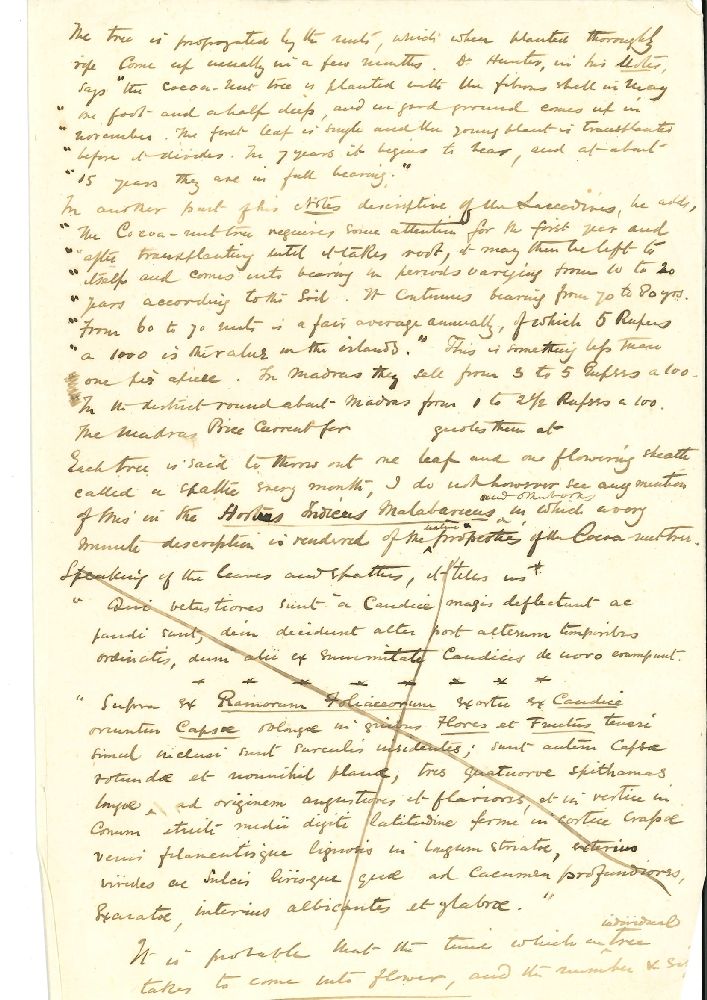 The tree is propagated by the nuts, which when planted thoroughly
ripe come up usually in a few months. Dr Hunter, in his Notes,
says "the cocoa-nut tree is planted with the fibrous shell in May
"one foot and a half deep, and in good ground comes up in
"November. The first leaf is single and the young plant is transplanted
"before it divides. In 7 years it begins to bear, and at about
"15 years they are in full bearing."
In another part of his Notes descriptive of the Laccadives, he adds,
"The Cocoa-nut tree requires some attention for the first year and
"after transplanting until it takes root, it may then be left to
"itself and comes into bearing in periods varying from 10 to 20
"years according to the soil. It continues bearing from 70 to 80 yrs.
"From 60 to 70 nuts is a fair average annually, of which 5 Rupees
"a 1000 is the value in the islands." This is something less than
one pie apiece. In Madras they sell from 3 to 5 Rupees a 100.
In the district round about Madras from 1 to 2 1/2 Rupees a 100.
The Madras Price Current for quotes them at
Each tree is said to throw out one leaf and one flowering sheath
called a spathe every month, I do not however see any mention
and other books
of this in the Hortus Indicus Malabaricus in which a very
minute description is rendered of the properties of the Cocoa-nut tree.
Speaking of the leaves and spathes, it tells us*
"Qui vetustiores sunt a Caudice magis deflectunt ac
pandi sunt, dein decidunt alter post alterum temporibus
ordinatis, dum alii ex summitate Caudicis de novo erumpunt.
* * * * * * * *
"Supra ex Ramorum Foliaceorum exortu ex Caudice
oriuntur Capsæ oblongæ in quibus Flores et Fructus teneri
simul inclusi sunt surculis insidentes; sunt autem Capsæ
rotundæ et nonnihil planæ, tres quatuorve spithamas
longæ, ad originem angustiores et flaviores, et in vertice in
Conum stricti medii digiti latitudine ferme in cortice crassæ
venis filamentisque lignosis in longum striatæ, exterius
virides ac sulcis lirisque quæ ad Cacumen profundiores,
Exaratæ, interius albicantes et glabræ."
individual
It is probable that the time which an tree
takes to come into flower, and the number &